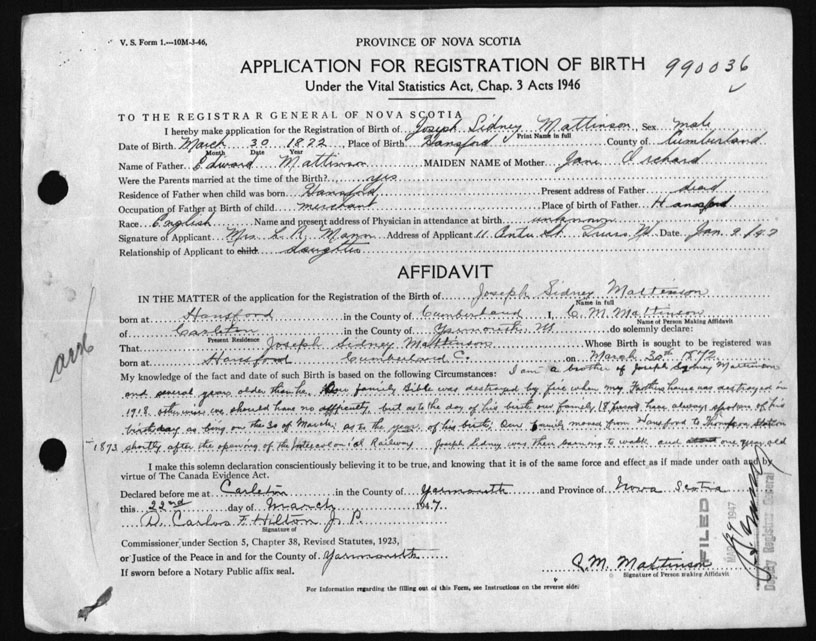 V. S. Form 1.—10M-3-46,
PROVINCE OF NOVA SCOTIA
APPLICATION FOR REGISTRATION OF BIRTH 990036
Under the Vital Statistics Act, Chap. 3 Acts 1946
TO THE REGISTRAR GENERAL OF NOVA SCOTIA
I hereby make application for the Registration of Birth of Joseph Sidney Mattinson, Sex male
Print Name in full
Date of Birth March 30 1872 Place of Birth Hansford County of Cumberland
Month Date Year
Name of Father Edward Mattinson MAIDEN NAME of Mother Jane Orchard
Were the Parents married at the time of the Birth? yes
Residence of Father when child was born Hansford Present address of Father dead
Occupation of Father at Birth of child merchant Place of birth of Father Hansford
Race English Name and present address of Physician in attendance at birth unknown
Signature of Applicant Mrs. L. R. Mann Address of Applicant 11 St. Truro Date Jan. 9
Relationship of Applicant to child daughter
AFFIDAVIT
IN THE MATTER of the application for the Registration of Birth of Joseph Sidney Mattinson
Name in full
born at Hansford in the County of Cumberland I, C. M. Mattinson
Name of Person Making Affidavit
of Carleton in the County of Yarmouth do solemnly declare:
Present Residence
That Joseph Sidney Mattinson Whose Birth is sought to be registered was
born at Hansford Cumberland C. on March 30th 1872
My knowledge of the fact and date of such Birth is based on the following Circumstances: I am a brother of Joseph Sydney Mattinson
and several years older than he. Our family Bible was destroyed by fire when my Fathers house was destroyed in
1918 otherwise we should have no difficulty, but as to the day of his birth our family have always spoken of his
birthday as being on the 30 of March, as to the year of his birth, Our Family moved from Hansford to Thompson Station
–1873 shortly after the opening of the Intercolonial Railway Joseph Sidney was then learning to walk and one year old
I make this solemn declaration conscientiously believing it to be true, and knowing that it is of the same force and effect as if made under oath and by
virtue of The Canada Evidence Act.
Declared before me at Carleton in the County of Yarmouth and Province of Nova Scotia
this 22nd day of March 1947
D. Carlos F. Hilton J. P.
Signature of
Commissioner under Section 5, Chapter 38, Revised Statutes, 1923,
or Justice of the Peace in and for the County of Yarmouth
If sworn before a Notary Public affix seal.
C. M. Mattinson
Signature of Person Making Affidavit
For Information regarding the filling out of this Form, see Instructions on the reverse side.
FILED
1947
Deputy Registrar General